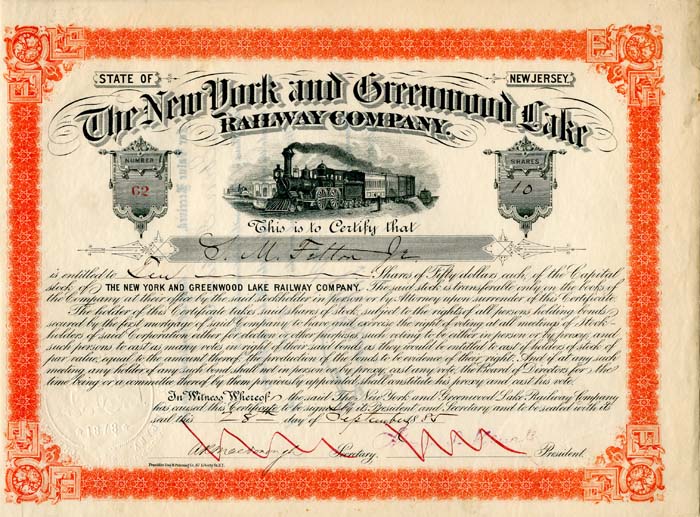 STATE OF NEW JERSEY.
The New York and Greenwood Lake
RAILWAY COMPANY.
NUMBER SHARES
62 10
This is to Certify that
S. M. Felton Jr
is entitled to Ten Shares of Fifty dollars each, of the Capital
stock of THE NEW YORK AND GREENWOOD LAKE RAILWAY COMPANY. The said stock is transferable only on the books of
the Company at their office by the said stockholder in Person or by Attorney upon surrender of this Certificate.
The holder of this Certificate takes said shares of stock, subject to the rights of all persons holding bonds
secured by the first mortgage of said Company to have and exercise the right of voting at all meetings of Stock-
holders of said Corporation either for election or other purposes, such voting to be either in person or by proxy, and
said persons to cast as many votes in right of their said bonds as they would be entitled to cast, if holders of stock, of
par value, equal to the amount thereof the production of the bonds to be evidence of their right. And if at any such
meeting any holder of any such bond shall not in person or by proxy, cast any vote, the Board of Directors for the
time being or a committee thereof by them previously appointed shall constitute his proxy and cast his vote.
In Witness Whereof the said The New York and Greenwood Lake Railway Company
has caused this Certificate to be signed by its President and Secretary, and to be sealed with its
seal this 8th day of September 1885
Secretary. President.
1878